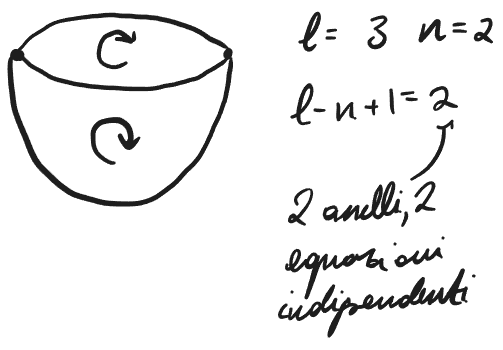 l= 3 n=2
l-n+1=2
2 anelli, 2
equazioni
indipendenti